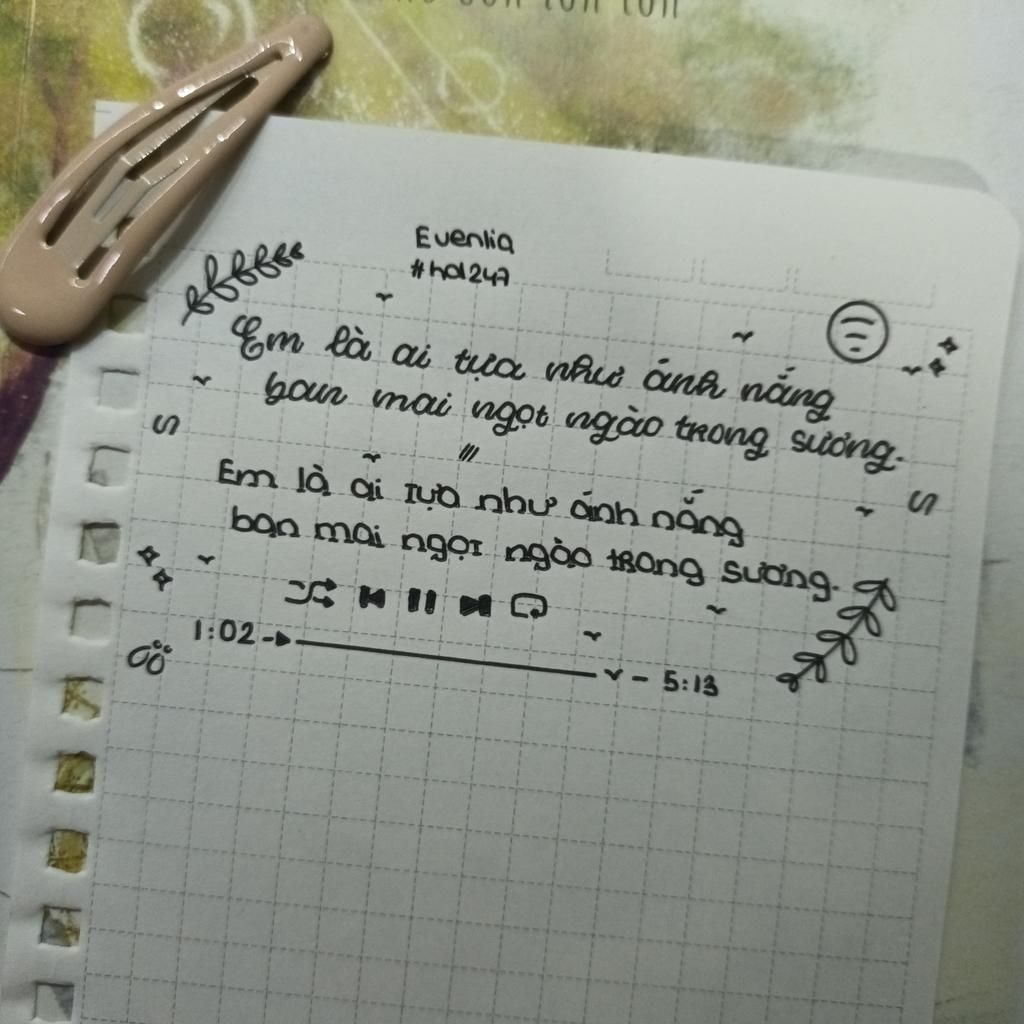 Evenlia
#hd1247
Em là ai tựa như ánh nắng
ban mai ngọt ngào trong sương.
Em là ai tựa như ánh nắng
ban mai ngọt ngào trong sương.
1:02 5:13